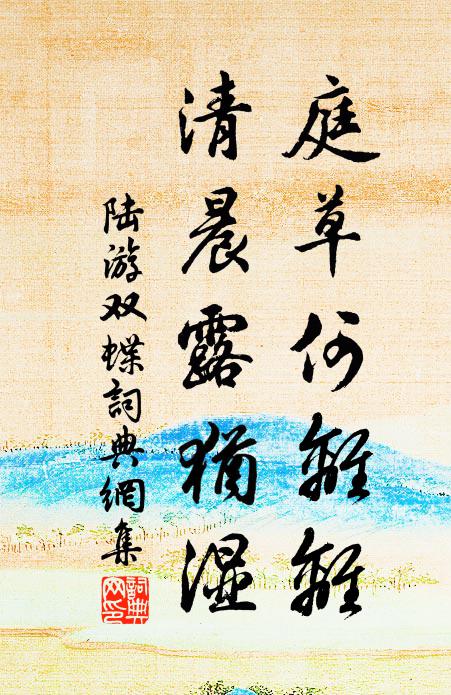 庭草何離離
清晨露猶湿
陆游双蝶詞典網集
詞典
网印